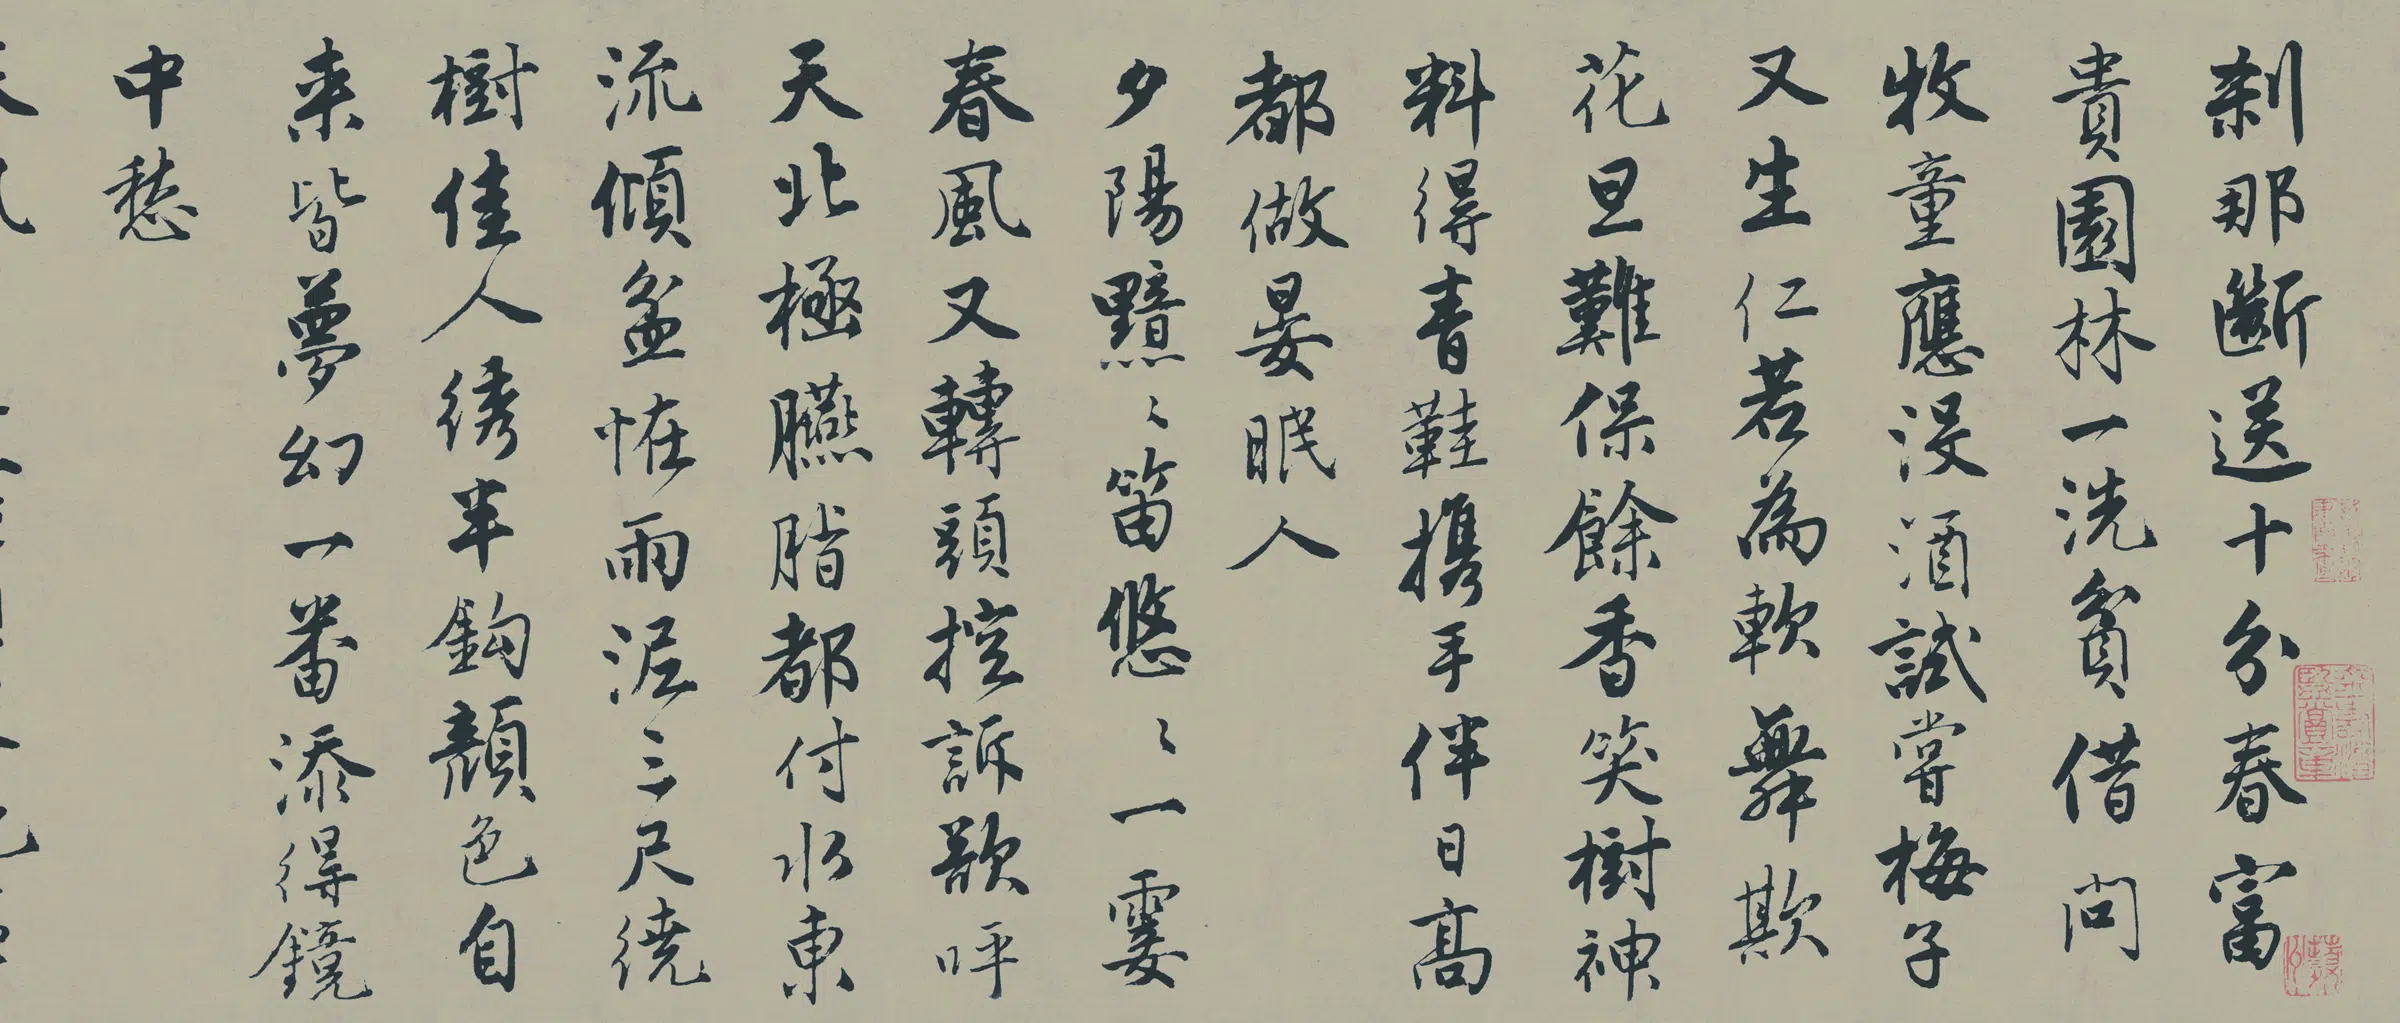 刹那斷送十分春富
貴園林一洗貧借問
牧童應没酒試嘗梅子
又生仁若為軟舞欺
花旦難保餘香笑樹神
料得青鞋携手伴日高
都做晏眠人
夕陽黯〻笛悠〻一霎
春風又轉頭控訴欲呼
天北極臙脂都付水東
流傾盆怪雨泥三尺繞
樹佳人綉半鈎顏色自
来皆夢幻一番添得鏡
中愁